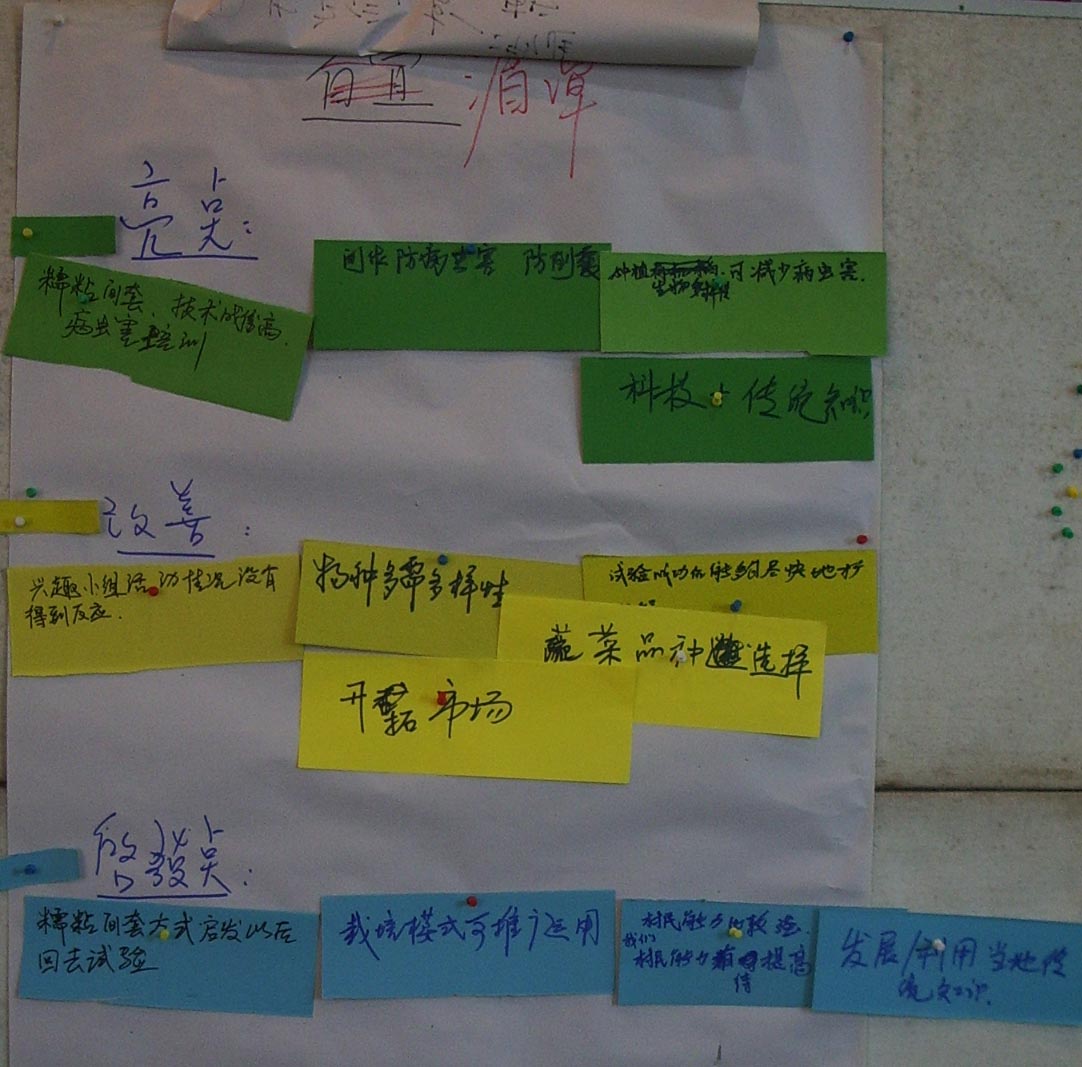 湄潭
亮点:
糯粘间套、技术的提高.
病虫害培训
间作防病虫害 防倒
种植 可减少病虫害.
生物多样性
科技 传统知识
改善:
兴趣小组活动情况没有
得到反应.
物种多需多样性
试验成功后能够尽快地扩
蔬菜品种选择
开拓市场
启發点:
糯粘间套方式启发以后
回去试验
栽培模式可推广运用
村民能力的较
我们
村民能力有待提高
发展/利用当地传
统知识.